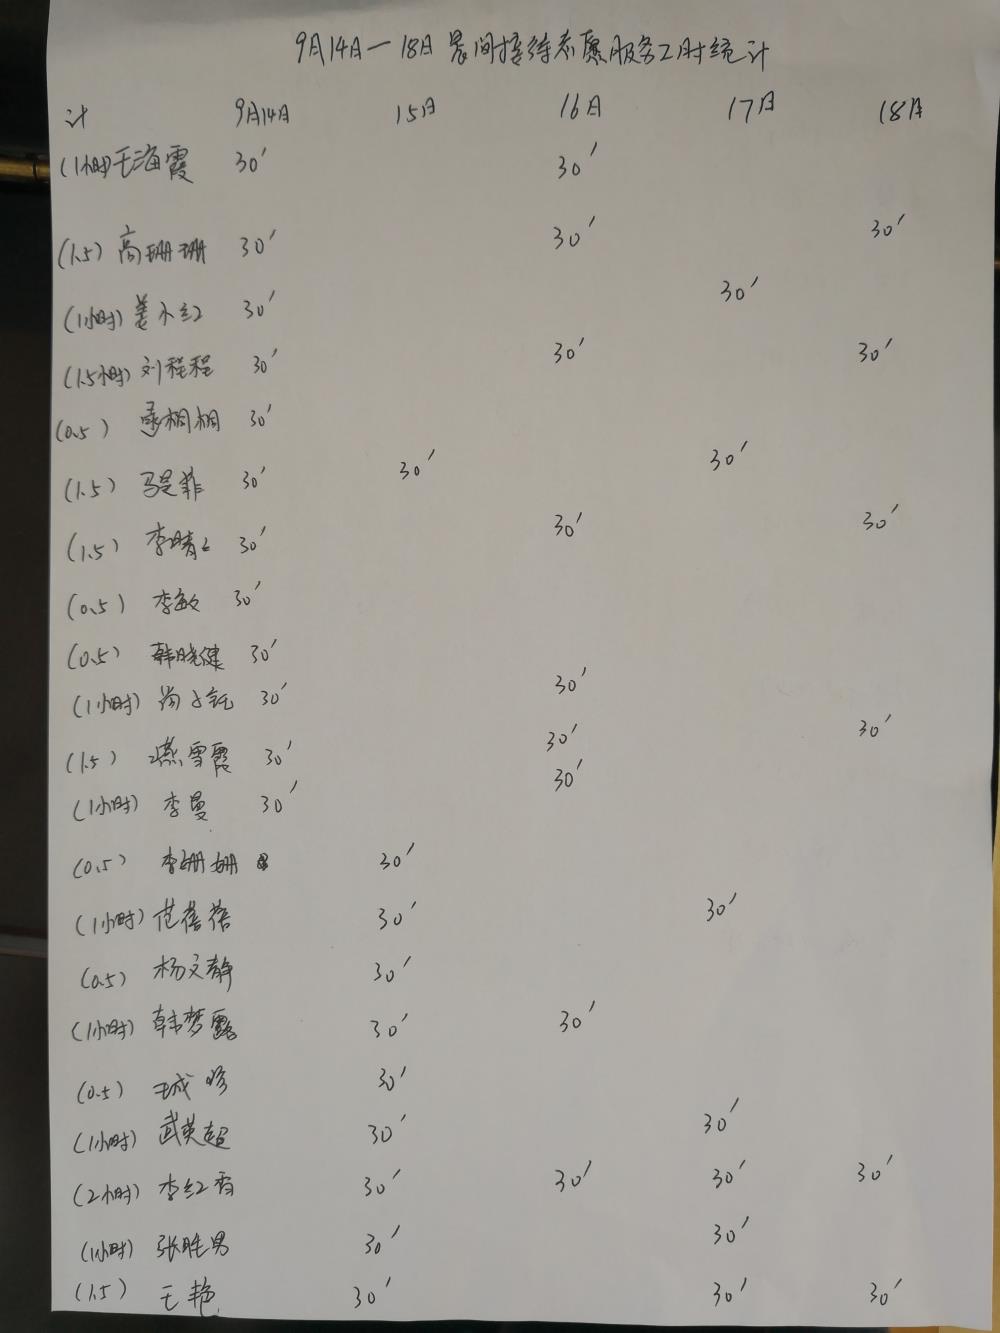 9月14日—18日 晨间接待志愿服务工时统计
计 9月14日 15日 16日 17日 18日
(1小时) 王海霞 30′ 30′
(1.5) 高珊珊 30′ 30′ 30′
(1小时) 姜小红 30′ 30′
(1.5小时) 刘程程 30′ 30′ 30′
(0.5) 桐桐 30′
(1.5) 马昊菲 30′ 30′ 30′
(1.5) 李晴 30′ 30′ 30′
(0.5) 李敏 30′
(0.5) 韩晓健 30′
(1小时) 尚子钰 30′ 30′
(1.5) 燕雪霞 30′ 30′ 30′
(1小时) 李曼 30′ 30′
(0.5) 李珊珊 30′
(1小时) 范蓓蓓 30′ 30′
(0.5) 杨文静 30′
(1小时) 韩梦露 30′ 30′
(0.5) 王成 30′
(1小时) 武英超 30′ 30′
(2小时) 李红香 30′ 30′ 30′ 30′
(1小时) 张胜男 30′ 30′
(1.5) 王艳 30′ 30′ 30′